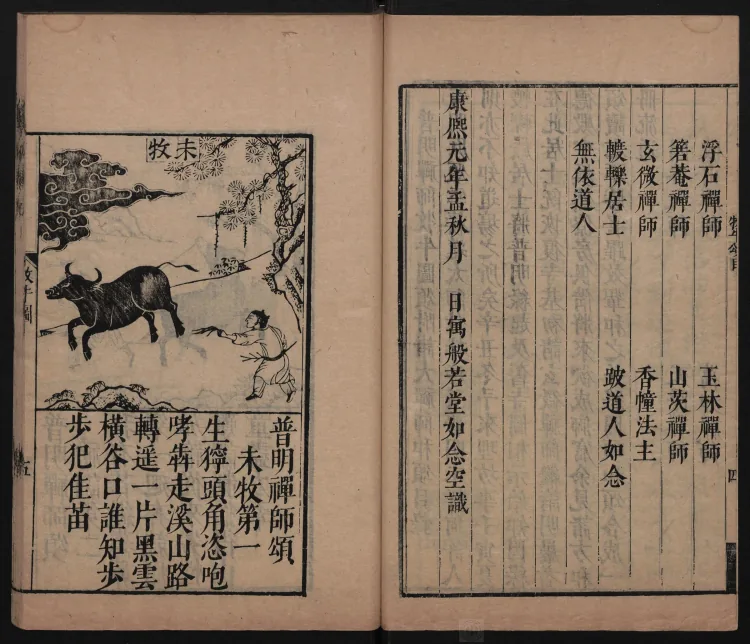 浮石禪師　玉林禪師
箬菴禪師　山茨禪師
玄微禪師　香幢法主
𨍏轢居士　跛道人如念
無依道人
康熙元年孟秋月　日寓般若堂如念空識
四
未牧
普明禪師頌
未牧第一
生獰頭角恣咆
哮犇走溪山路
轉遥一片黑雲
橫谷口誰知步
步犯佳苗
牧牛圖
五